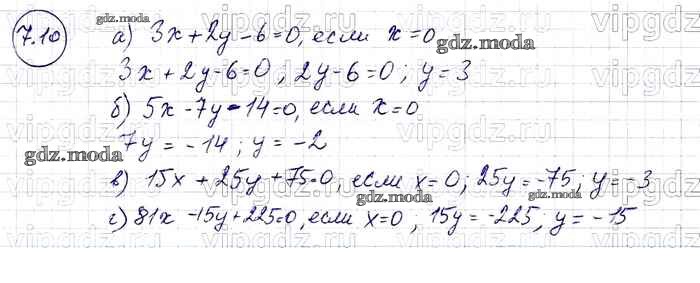 7.10 а) 3x + 2y - 6 = 0, если x = 0
3x + 2y - 6 = 0 , 2y - 6 = 0 ; y = 3
б) 5x - 7y - 14 = 0, если x = 0
7y = - 14 ; y = - 2
в) 15x + 25y + 75 = 0, если x = 0; 25y = -75; y = - 3
г) 81x - 15y + 225 = 0, если x = 0 ; 15y = -225, y = - 15
gdz.moda
gdz.moda
gdz.moda
gdz.moda
gdz.moda
vipgdz